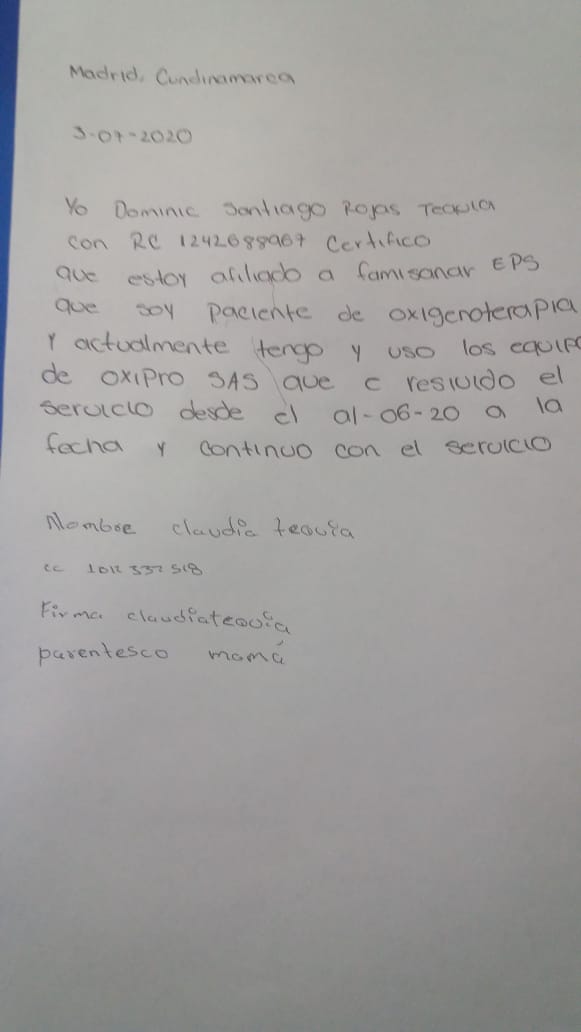 Madrid, Cundinamarca
3-07-2020
Yo Dominic Santiago Rojas Tequia
con RC 1242688967 Certifico
que estoy afiliado a famisanar EPS
que soy paciente de oxigenoterapia
Y actualmente tengo y uso los equipo
de OXIPRO SAS que e resivido el
servicio desde el 01-06-20 a la
fecha y continuo con el servicio
Nombre claudia tequia
cc 1012 337 518
Firma claudiatequia
parentesco mamá